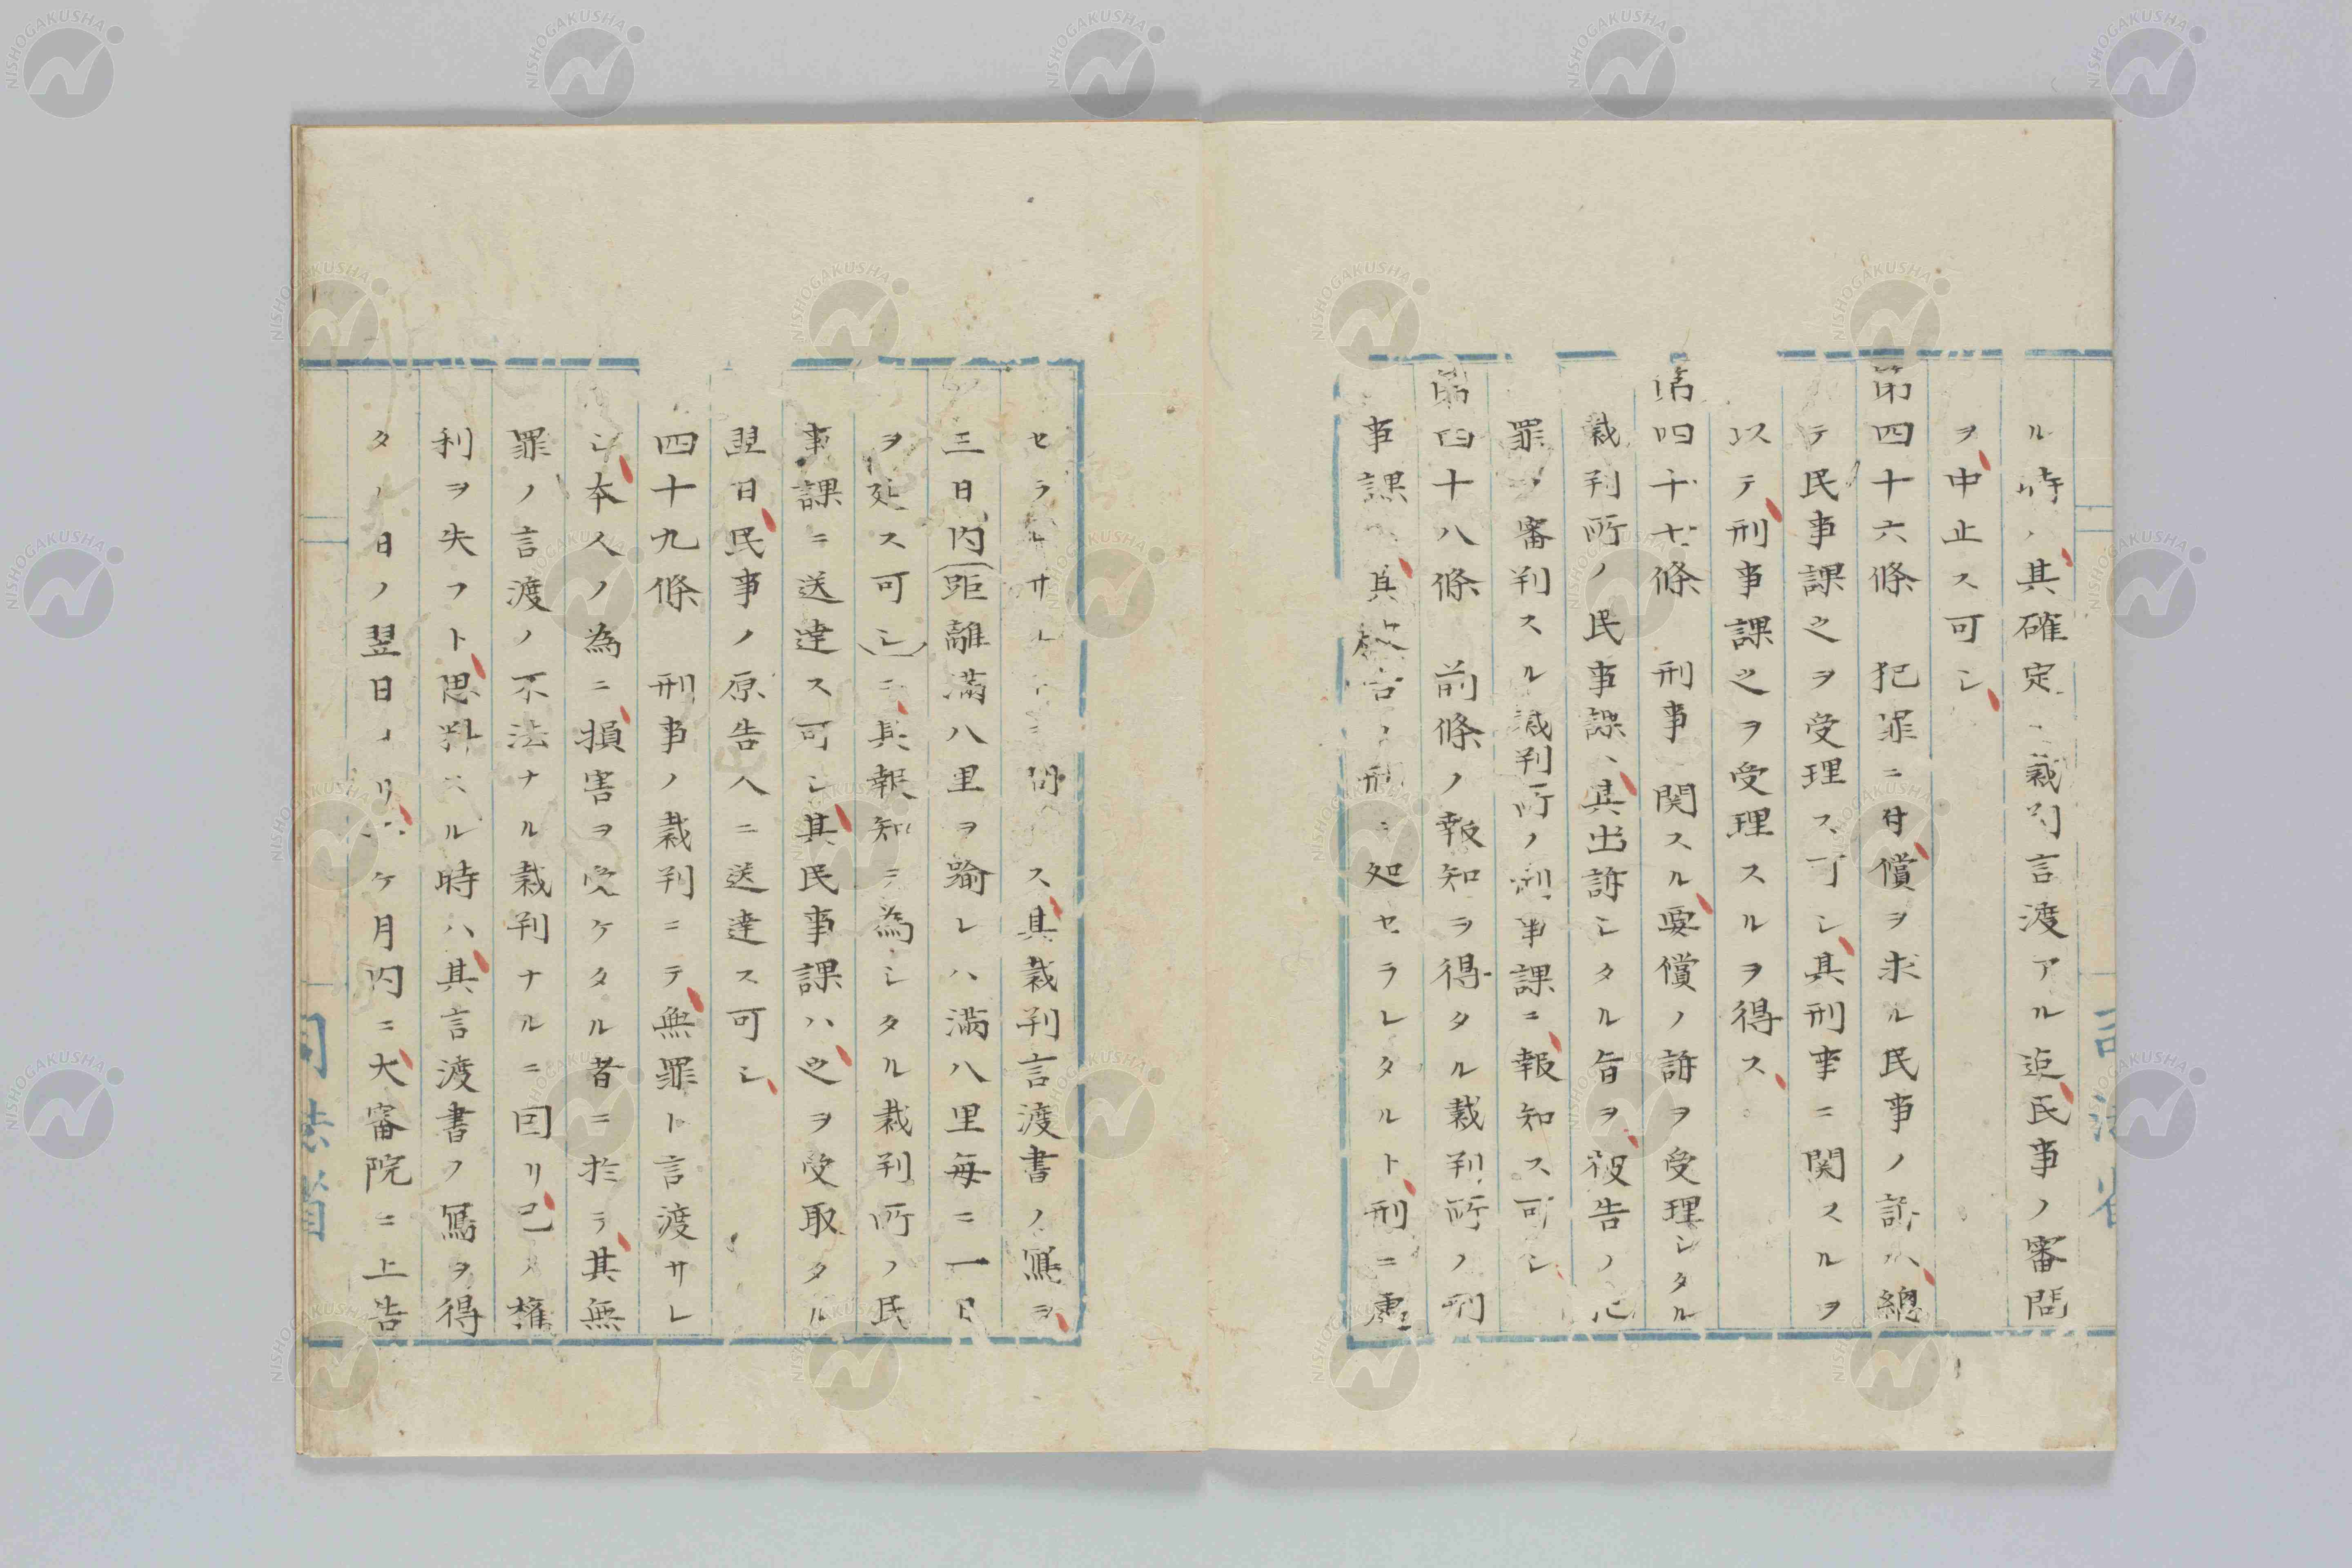 ル時ハ其確定ノ裁判言渡アル迄民事ノ審問
ヲ中止ス可シ
第四十六條　犯罪ニ付償ヲ求ル民事ノ訴ハ總
テ民事課之ヲ受理ス可シ其刑事ニ関スルヲ
以テ刑事課之ヲ受理スルヲ得ス
第四十七條　刑事ニ関スル要償ノ訴ヲ受理シタル
裁判所ノ民事課ハ其出訴シタル旨ヲ被告ノ犯
罪ヲ審判スル裁判所ノ刑事課ニ報知ス可シ
第四十八條　前條ノ報知ヲ得タル裁判所ノ刑
事課ハ其被告ノ刑ニ処セラレタルト刑ニ處
セラレサルトヲ問ハス其裁判言渡書ノ寫ヲ
三日内(距離満八里ヲ踰レハ満八里毎ニ一日
ヲ延ス可シ)ニ其報知ヲ為シタル裁判所ノ民
事課ニ送達ス可シ其民事課ハ之ヲ受取タル
翌日民事ノ原告人ニ送達ス可シ
四十九條　刑事ノ裁判ニテ無罪ト言渡サレ
シ本人ノ為ニ損害ヲ受ケタル者ニ於テ其無
罪ノ言渡ノ不法ナル裁判ナルニ因リ己ノ權
利ヲ失フト思料スル時ハ其言渡書ノ寫ヲ得
タル日ノ翌日ヨリ ケ月内ニ大審院ニ上告
司法省
司法省
NISHOGAKUSHA